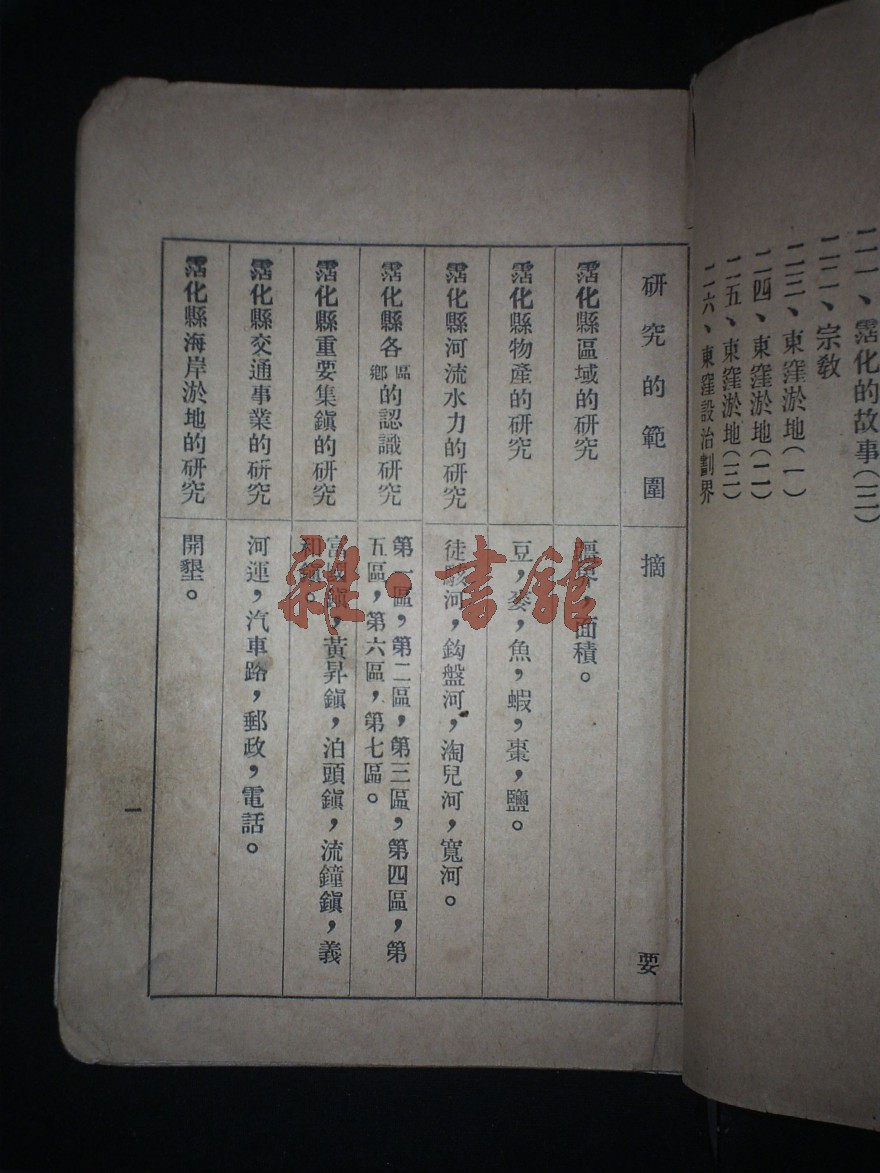 二一、霑化的故事(三)
二二、宗教
二三、東窪淤地(一)
二四、東窪淤地(二)
二五、東窪淤地(三)
二六、東窪設治劃界
研究的範圍
摘要
霑化縣區域的研究
疆界,面積。
霑化縣物產的研究
豆,麥,魚,蝦,棗,鹽。
霑化縣河流水力的研究
徒駭河,鈎盤河,淘兒河,寬河。
霑化縣各區鄉的認識研究
第一區,第二區,第三區,第四區,第
五區,第六區,第七區。
霑化縣重要集鎮的研究
富國鎮,黃昇鎮,泊頭鎮,流鐘鎮,義
和鎮。
霑化縣交通事業的研究
河運,汽車路,郵政,電話。
霑化縣海岸淤地的研究
開墾。
一
雜·書館